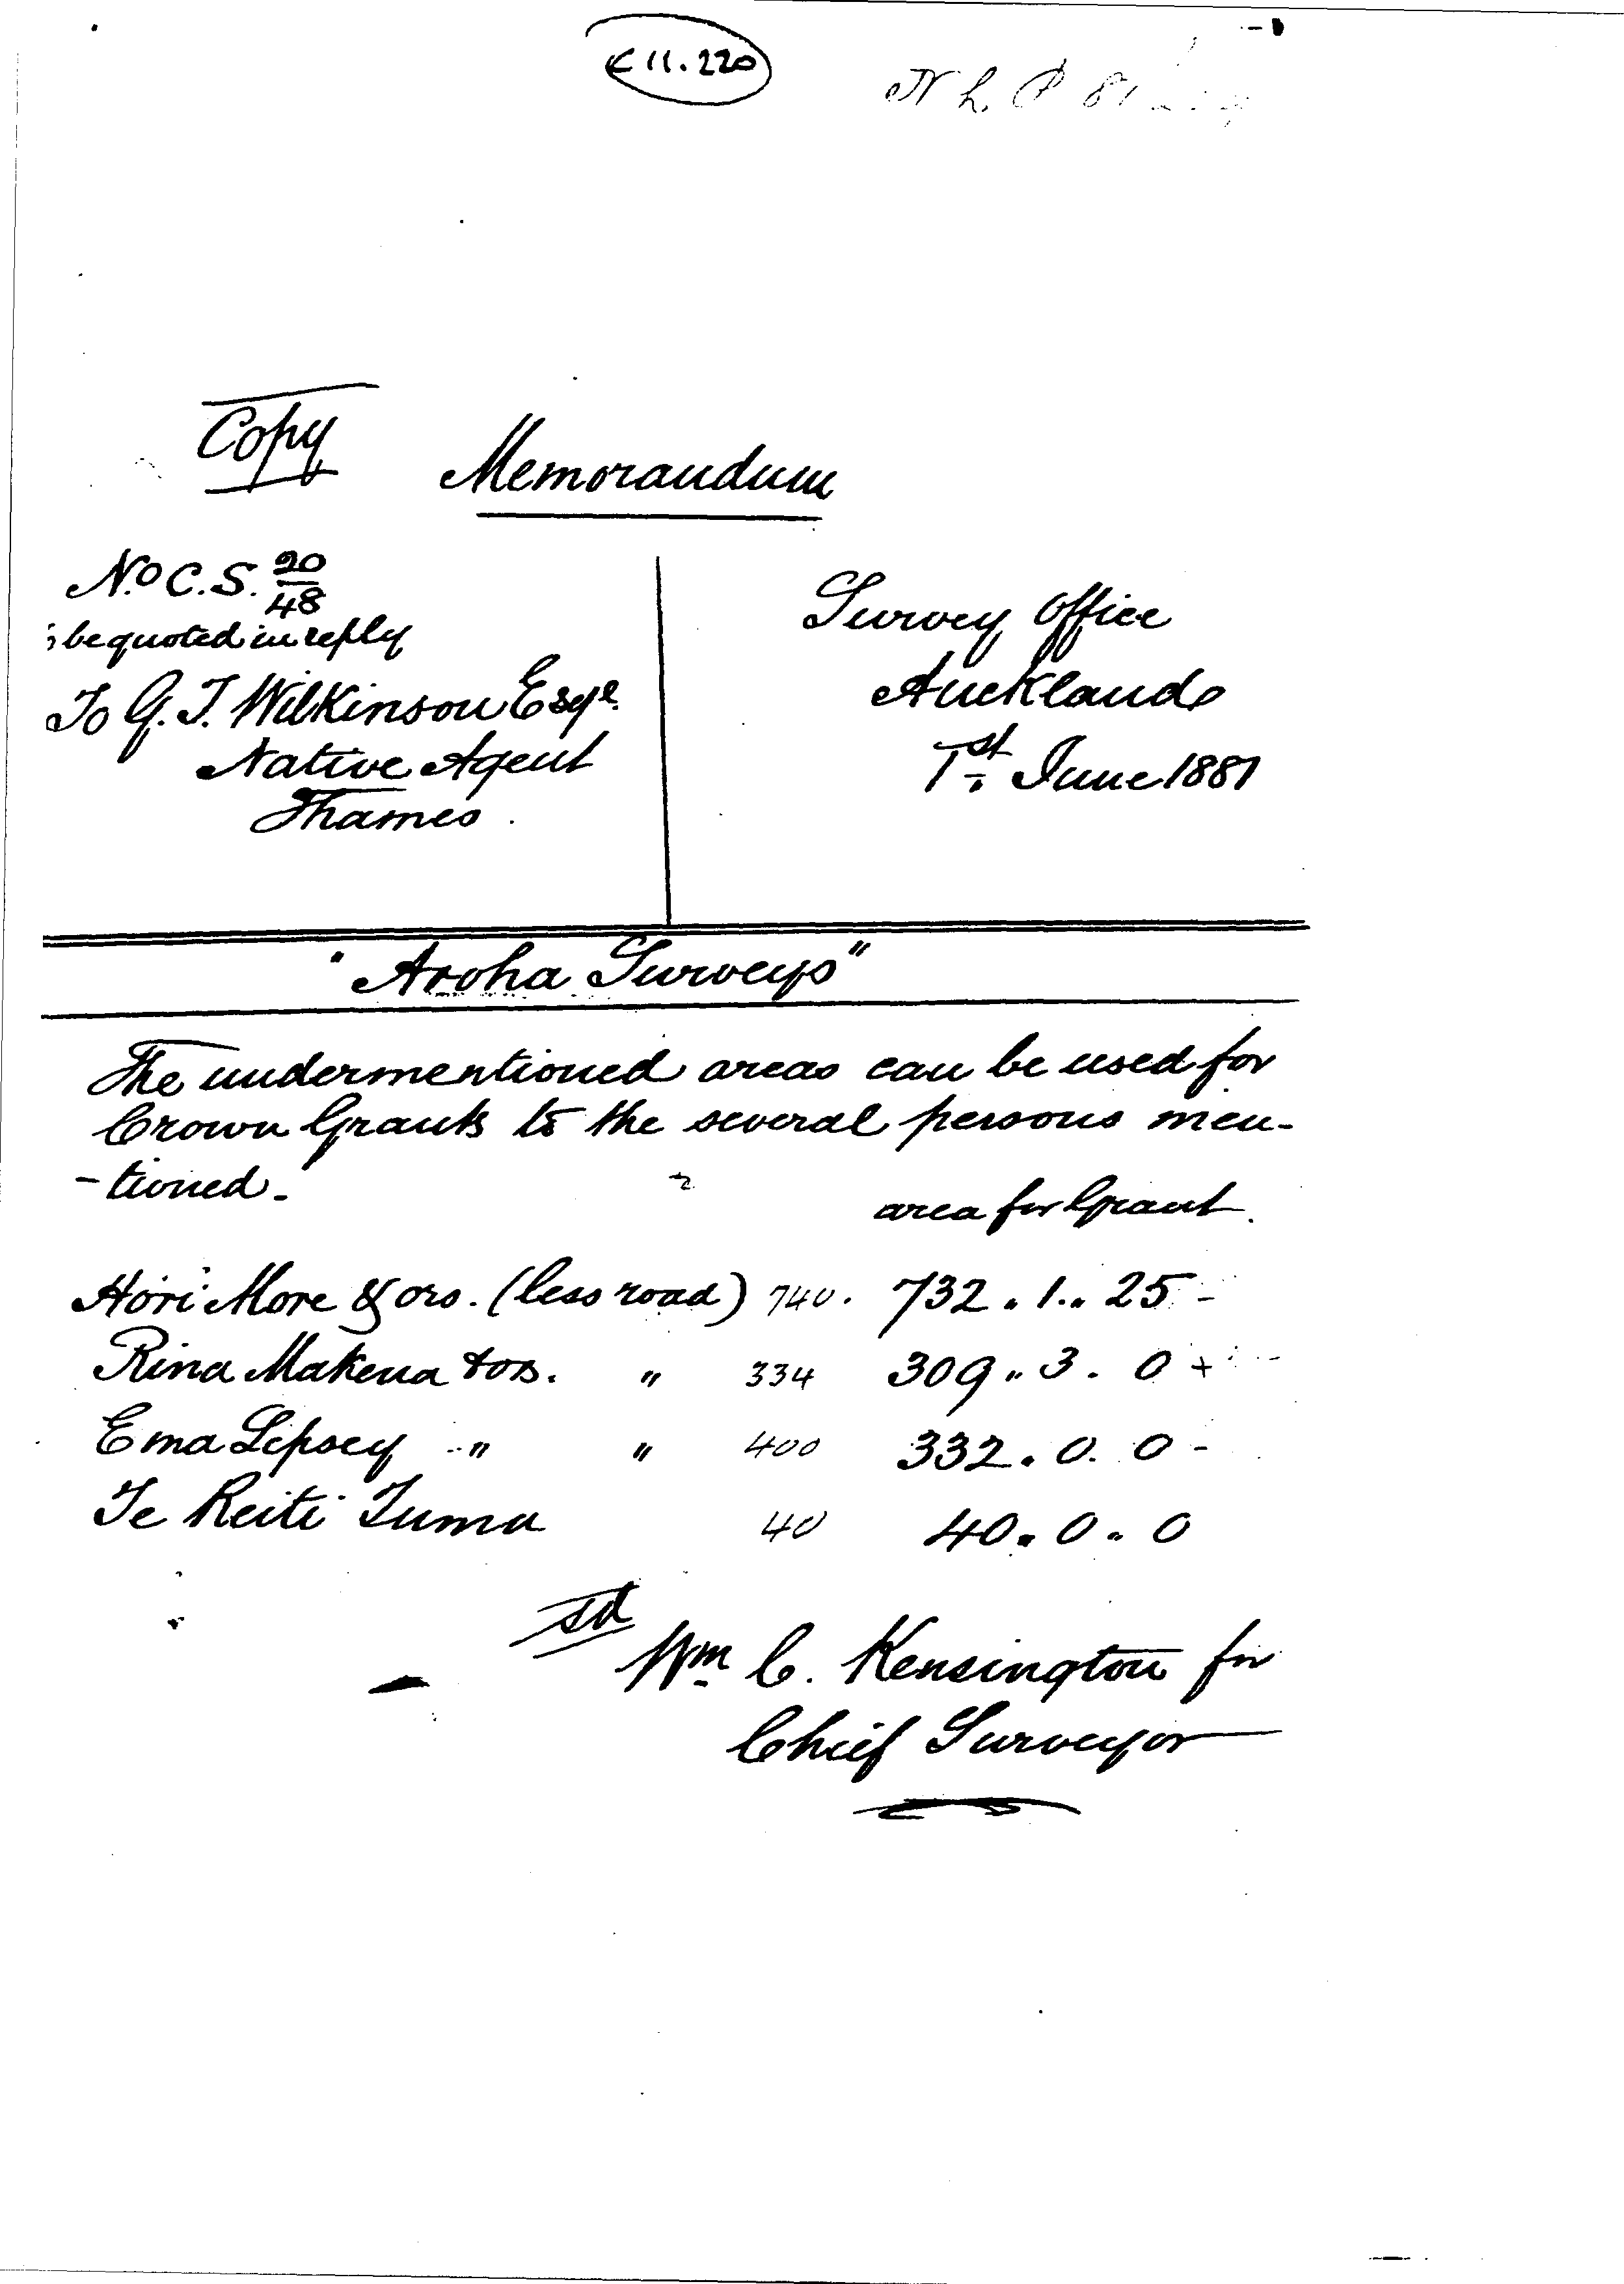 E 11.220
N L P 81
Copy
Memorandum
No C.S. 20/48
be quoted in reply
To G. T. Wilkinson Esqre.
Native Agent
Thames.
Survey Office
Auckland
1st June 1881
"Aroha Surveys"
The undermentioned areas can be used for
Crown Grants to the several persons men-
-tioned.
area for Grant.
Hori More & ors. (less road) 740. 732. 1.. 25 -
Rina Makena & ors. " 334 309.. 3. 0 +
Ema Lipsey " " 400 332. 0. 0 -
Te Reiti Tuma 40 40. 0.. 0
sd
Wm C. Kensington for
Chief Surveyor